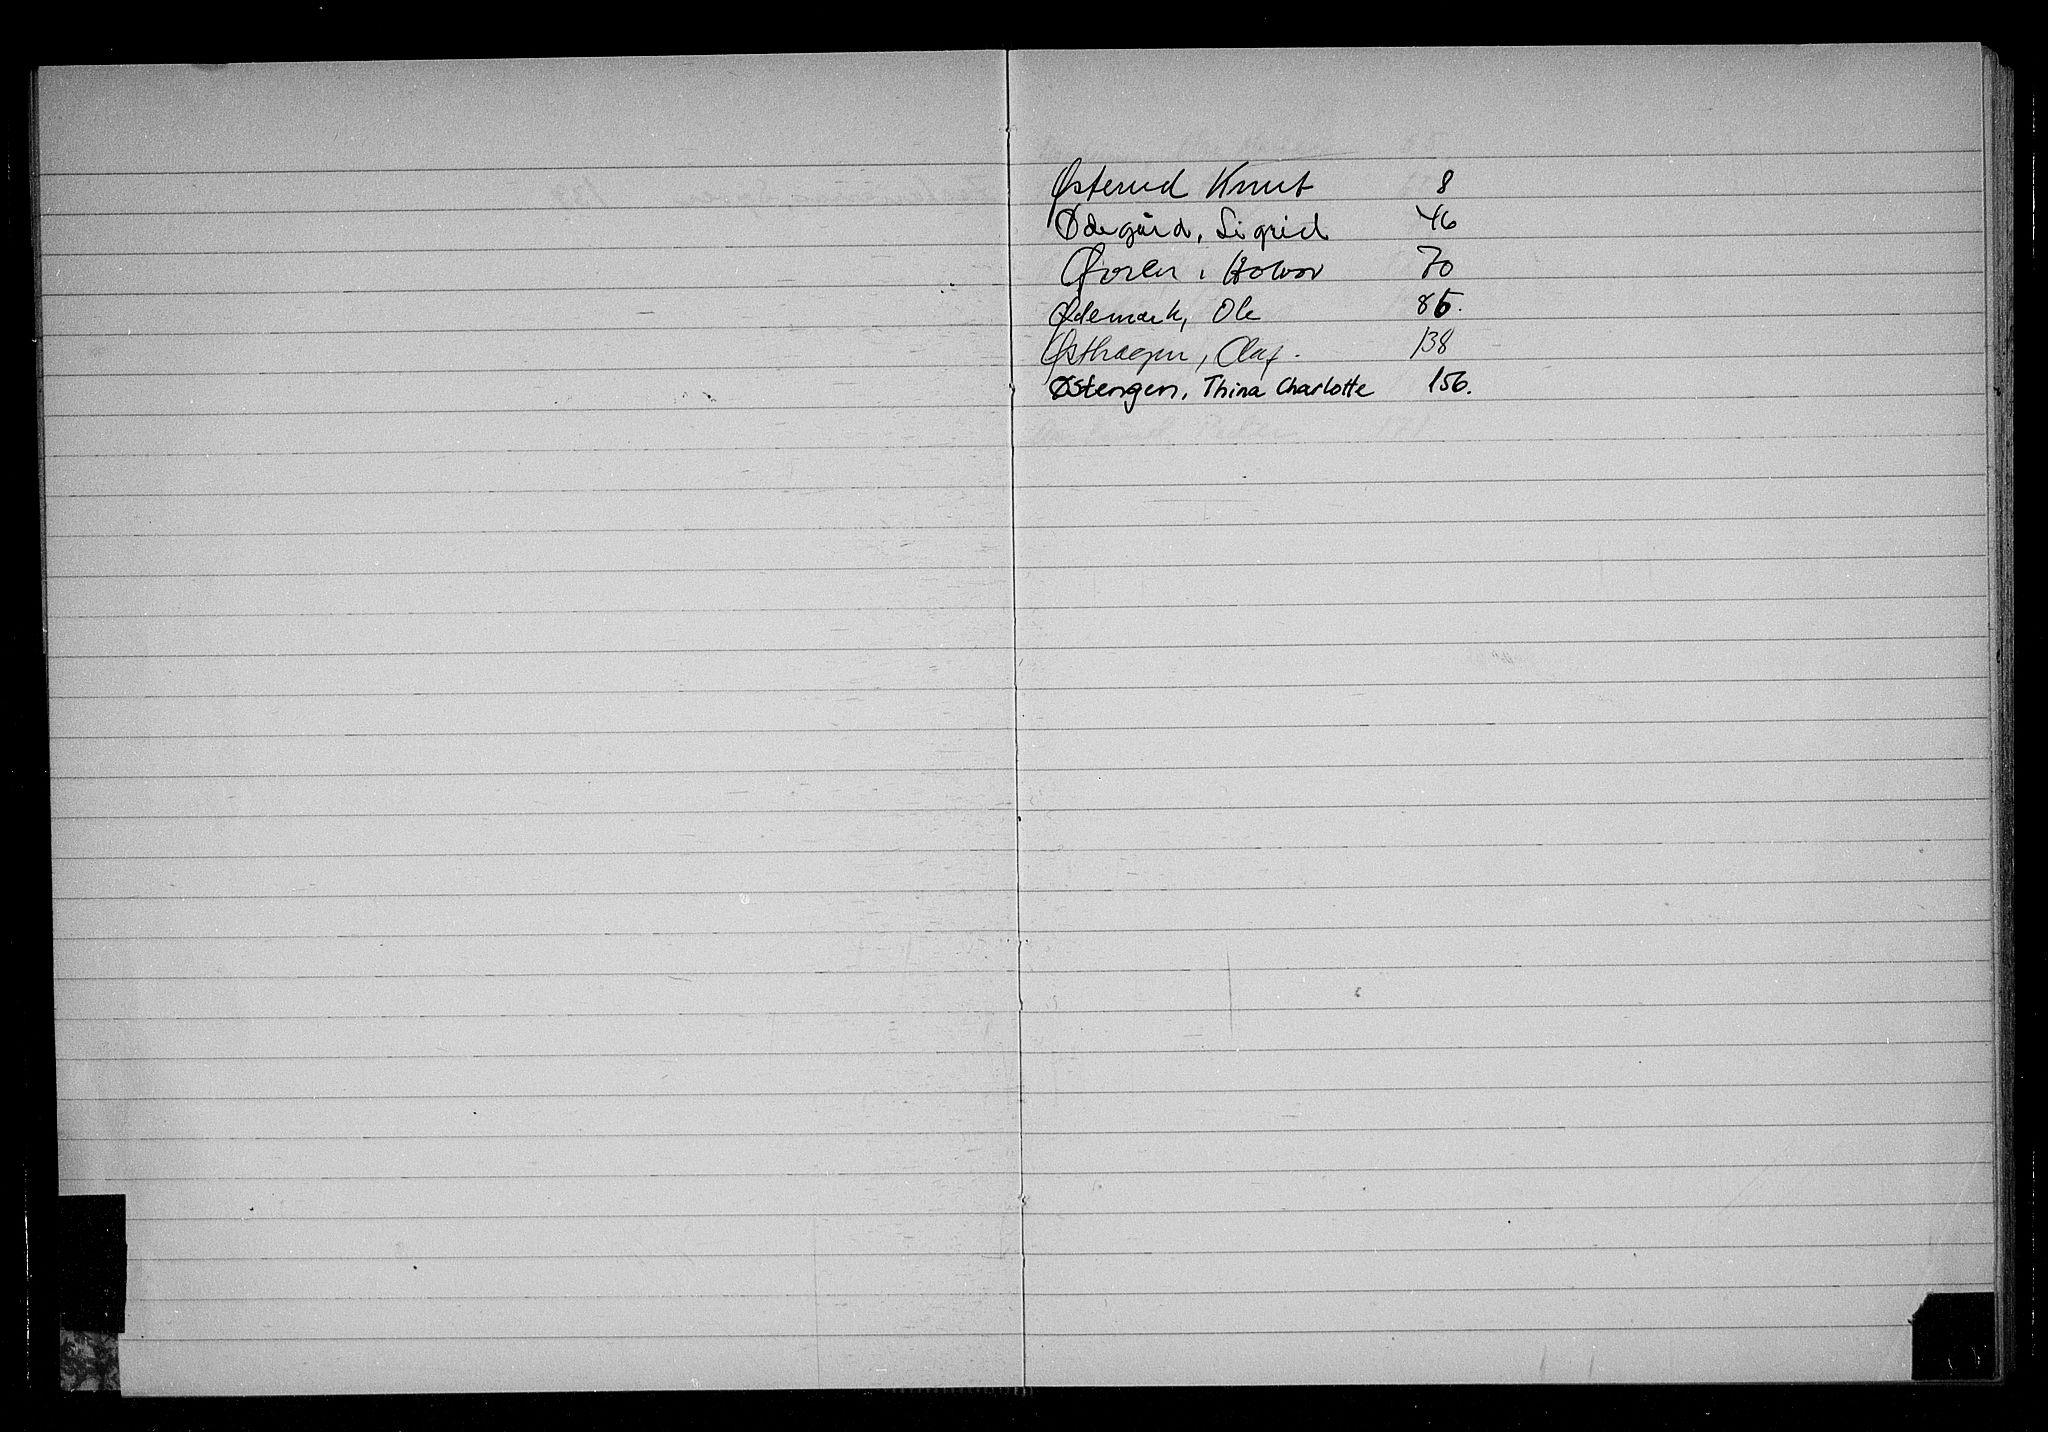 Østerud Knut 8
Ødegård, Sigrid 46
Øvren, Halvor 70
Ødemark, Ole 85.
Østhagen, Olaf. 138
Østengen, Thina Charlotte 156.